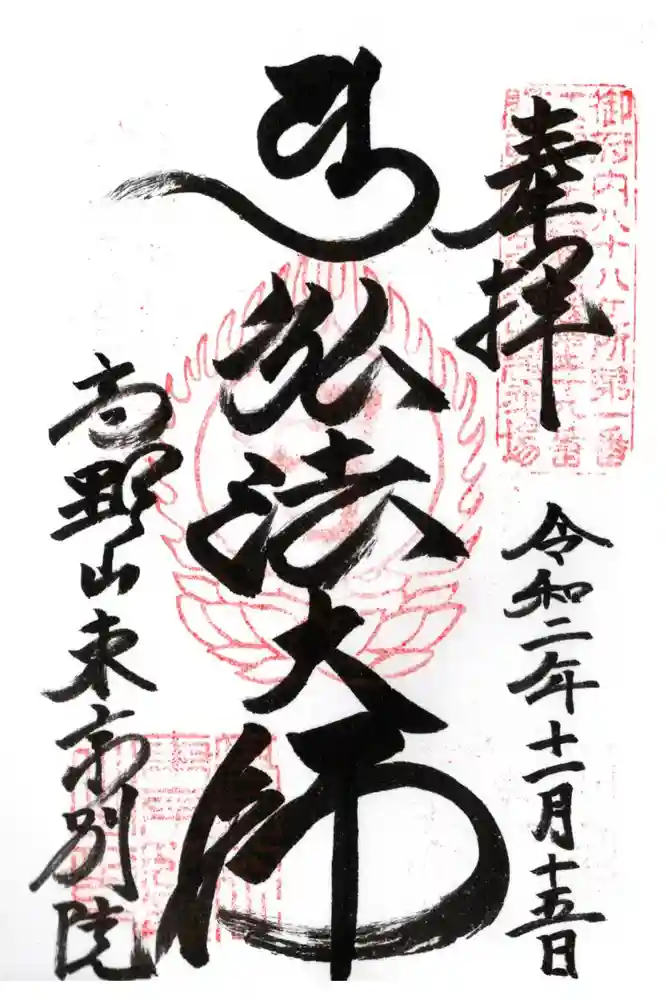 奉拝
令和二年十一月十五日
御府内八十八ケ所第一番
弘法大師
高野山東京別院